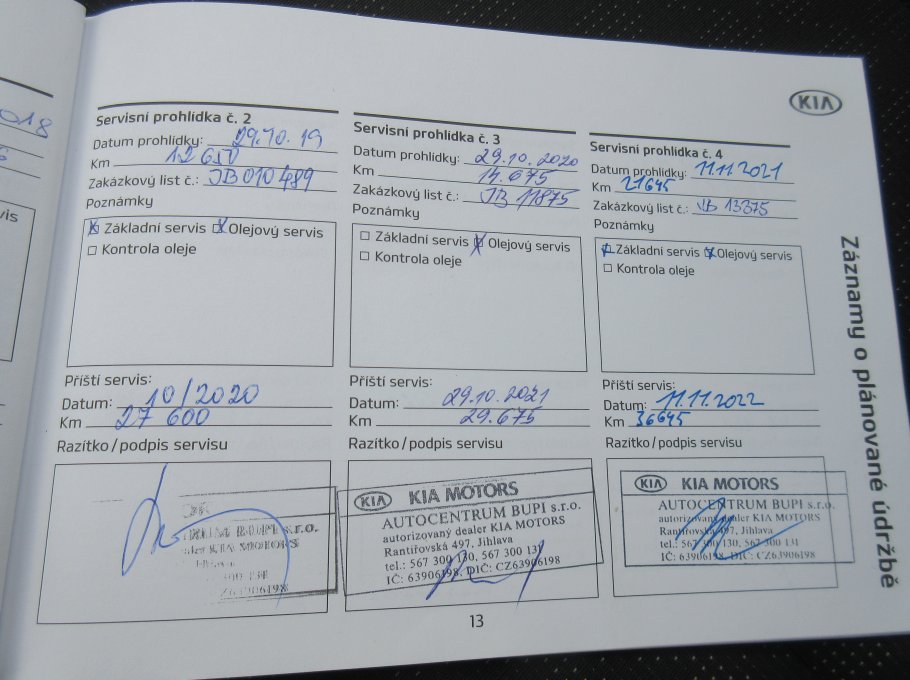 018
6
vis
KIA
Servisní prohlídka č. 2
Datum prohlídky: 29.10.19
Km 12 650
Zakázkový list č.: JB010489
Poznámky
Základní servis Olejový servis
Kontrola oleje
Příští servis:
Datum: 10/2020
Km 27 600
Razítko/podpis servisu
BUPI s.r.o.
KIA MOTORS
Servisní prohlídka č. 3
Datum prohlídky: 29.10.2020
Km 14.675
Zakázkový list č.: JB 11875
Poznámky
Základní servis Olejový servis
Kontrola oleje
Příští servis:
Datum: 29.10.2021
Km 29.675
Razítko/podpis servisu
KIA KIA MOTORS
AUTOCENTRUM BUPI s.r.o.
autorizovaný dealer KIA MOTORS
Rantířovská 497, Jihlava
tel.: 567 300 130, 567 300 131
IČ: 63906198, DIČ: CZ63906198
Servisní prohlídka č. 4
Datum prohlídky: 11.11.2021
Km 21645
Zakázkový list č.: JB 13375
Poznámky
Základní servis Olejový servis
Kontrola oleje
Příští servis:
Datum: 11.11.2022
Km 36645
Razítko/podpis servisu
KIA KIA MOTORS
AUTOCENTRUM BUPI s.r.o.
autorizovaný dealer KIA MOTORS
Rantířovská 497, Jihlava
tel.: 567 300 130, 567 300 131
IČ: 63906198, DIČ: CZ63906198
Záznamy o plánované údržbě
13